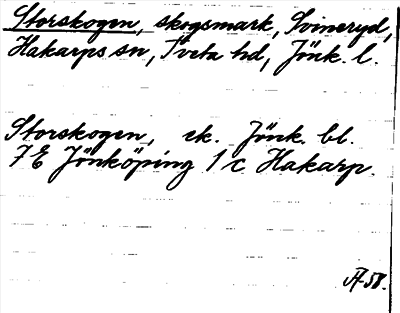 Storskogen, skogsmark, Svineryd,
Hakarps sn, Tveta hd, Jönk. l.
Storskogen, ek. Jönk. bl.
7E Jönköping 1c Hakarp.
58.